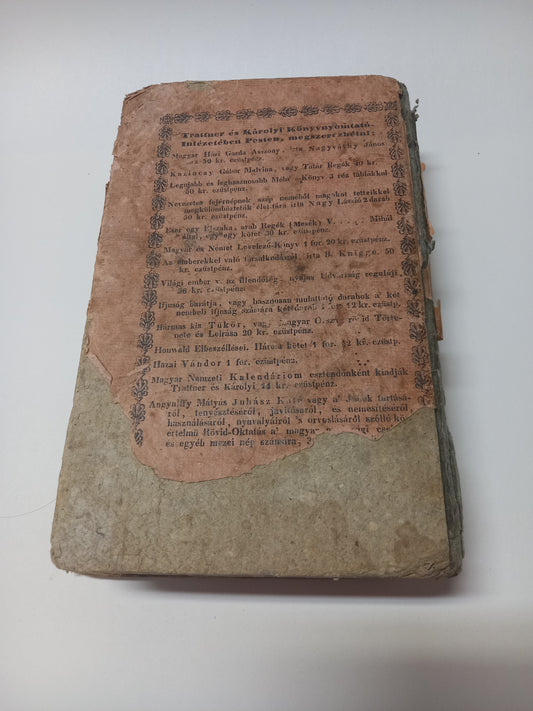 Trattner és Károlyi Könyvnyomtató-
Intézetében Pesten, megszerezhetni:
Magyar Házi Gazda Asszony, írta Nagyváthy János
50 kr. ezüstpénz.
Kazinczy Gábor Malvina, vagy Tatár Regék 40 kr.
Legujabb és leghasznosabb Méhes-Könyv 3 réz táblákkal
50 kr. ezüstpénz.
Nevezetes fejérnépek szép nemöket magokat tetteikkel
megkülömböztetők élet-lára írta Nagy László 2 darab
50 kr. ezüstpénz.
Ezer egy Éjszaka, arab Regék (Mesék) V. Mihál
által, egy egy kötet 30 kr. ezüstpénz.
Magyar és Német Levelező-Könyv 1 for. 20 kr. ezüstpénz.
Az emberekkel való társalkodásról, írta B. Knigge. 50
kr. ezüstpénz.
Világi ember v. az illendőség, nyájas Udvariság reguláji
36 kr. ezüstpénz.
Ifjuság barátja, vagy hasznosan mulattató darabok a' két
nembeli ifjuság számára 12 kr. ezüstpénz.
Hármas kis Tükör, Magyar Ország rövid Törté-
nete és Leírása 20 kr. ezüstpénz.
Houwald Elbeszéllései. Három kötet 1 for. 12 kr. ezüstp.
Hazai Vándor 1 for. ezüstpénz.
Magyar Nemzeti Kalendáriom esztendőnként kiadják
Trattner és Károlyi 24 kr. ezüstpénz.
Angyalffy Mátyás Juhász Káté vagy a' Juhok tartásá-
ról, tenyésztéséről, javításáról, és nemesítéséről
használásáról, nyavalyáiról 's orvoslásáról szólló kö
értelmű Rövid-Oktatás a' magyar
és egyéb mezei nép számára,